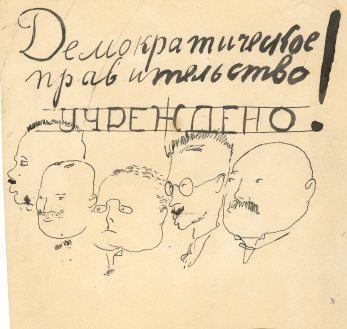 Демократическое
правительство!
УЧРЕЖДЕНО.